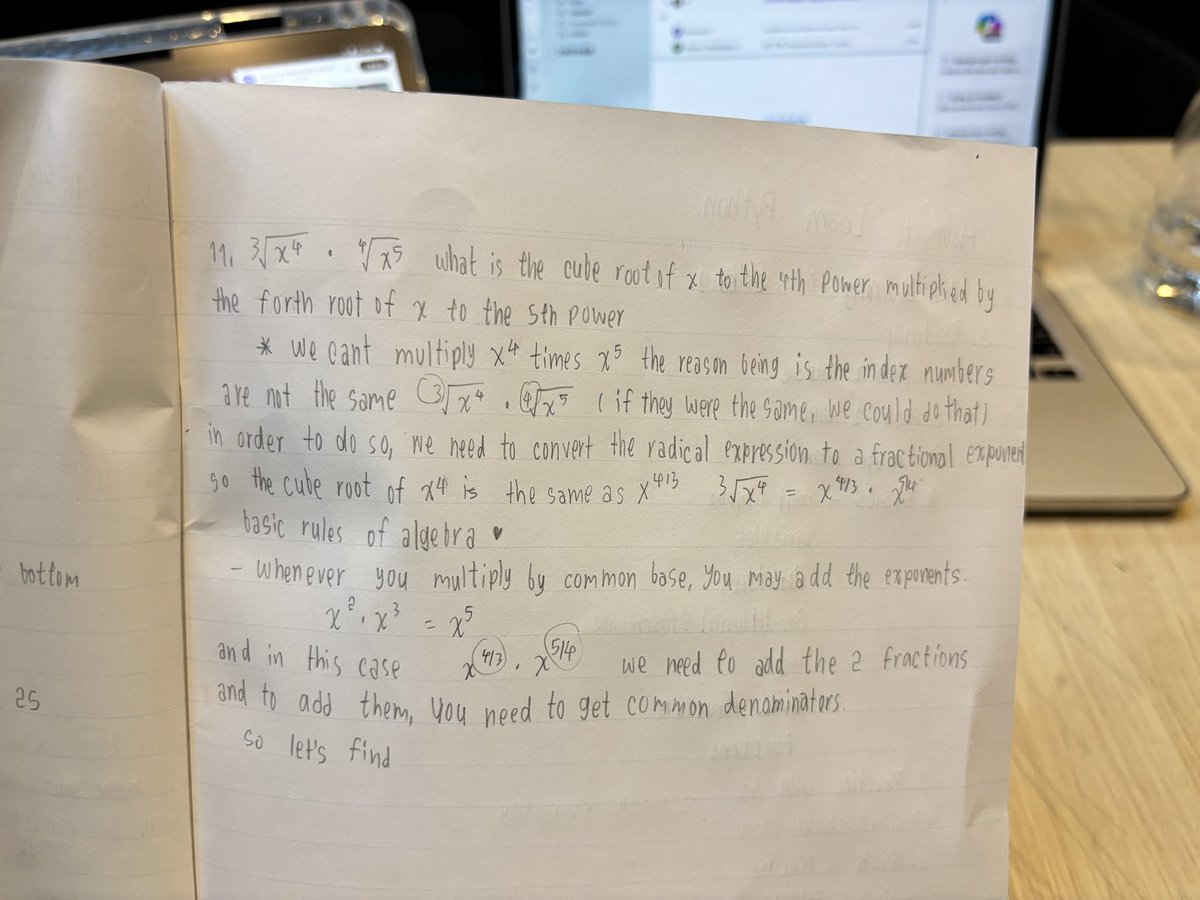 bottom
25
11. ∛x⁴ · ∜x⁵ what is the cube root of x to the 4th power multiplied by
the forth root of x to the 5th power
* we cant multiply x⁴ times x⁵ the reason being is the index numbers
are not the same ∛x⁴ · ∜x⁵ (if they were the same, we could do that)
in order to do so, we need to convert the radical expression to a fractional exponent
so the cube root of x⁴ is the same as x^4/3 ∛x⁴ = x^4/3 · x^5/4
basic rules of algebra ♥
- Whenever you multiply by common base, you may add the exponents.
x² · x³ = x⁵
and in this case x^4/3 · x^5/4 we need to add the 2 fractions
and to add them, you need to get common denominators.
so let's find